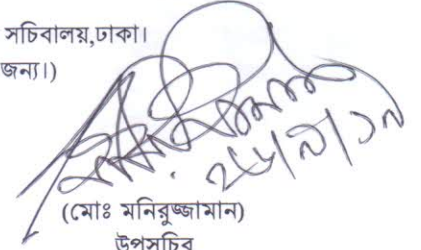 সচিবালয়,ঢাকা।
জন্য।)
(মোঃ মনিরুজ্জামান)
উপসচিব